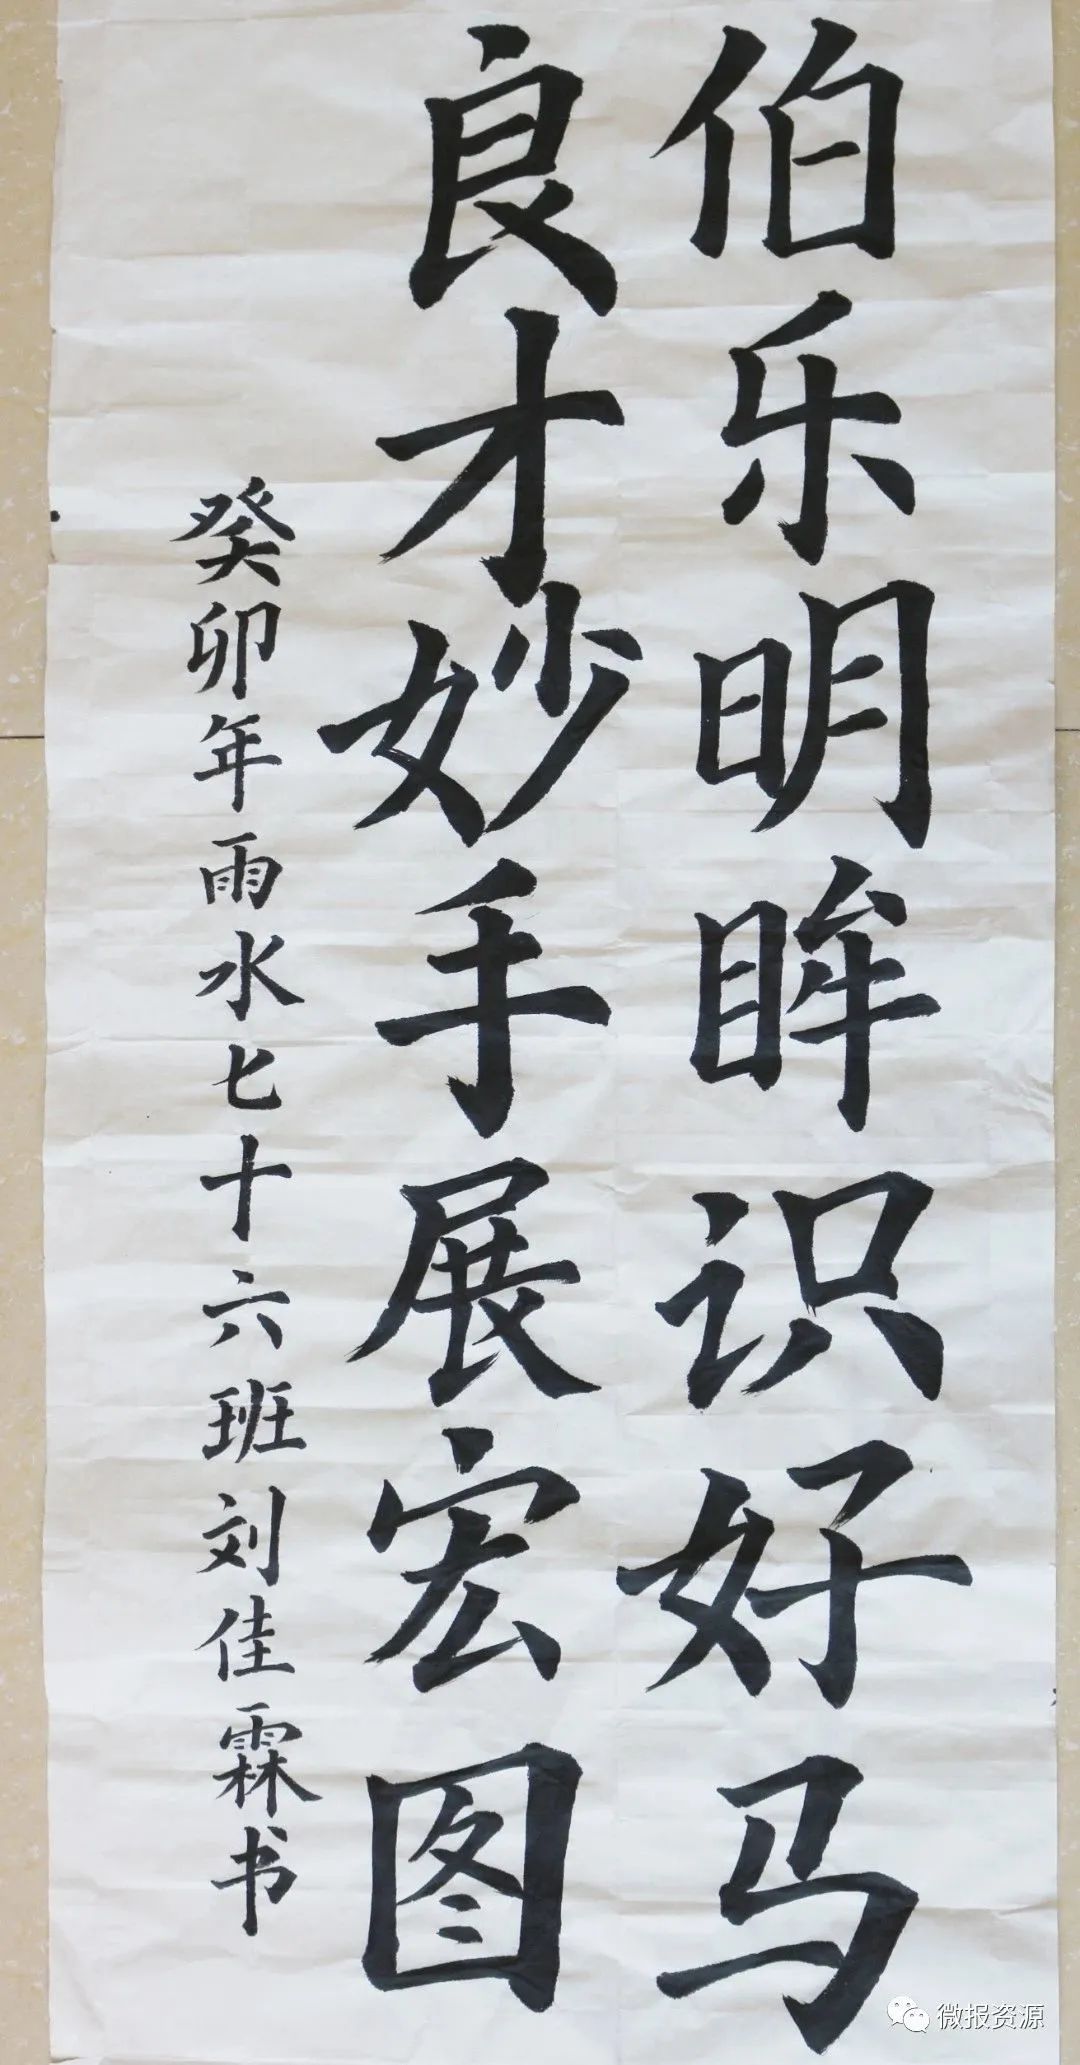 伯乐明眸识好马
良才妙手展宏图
癸卯年雨水七十六班刘佳霖书
微报资源